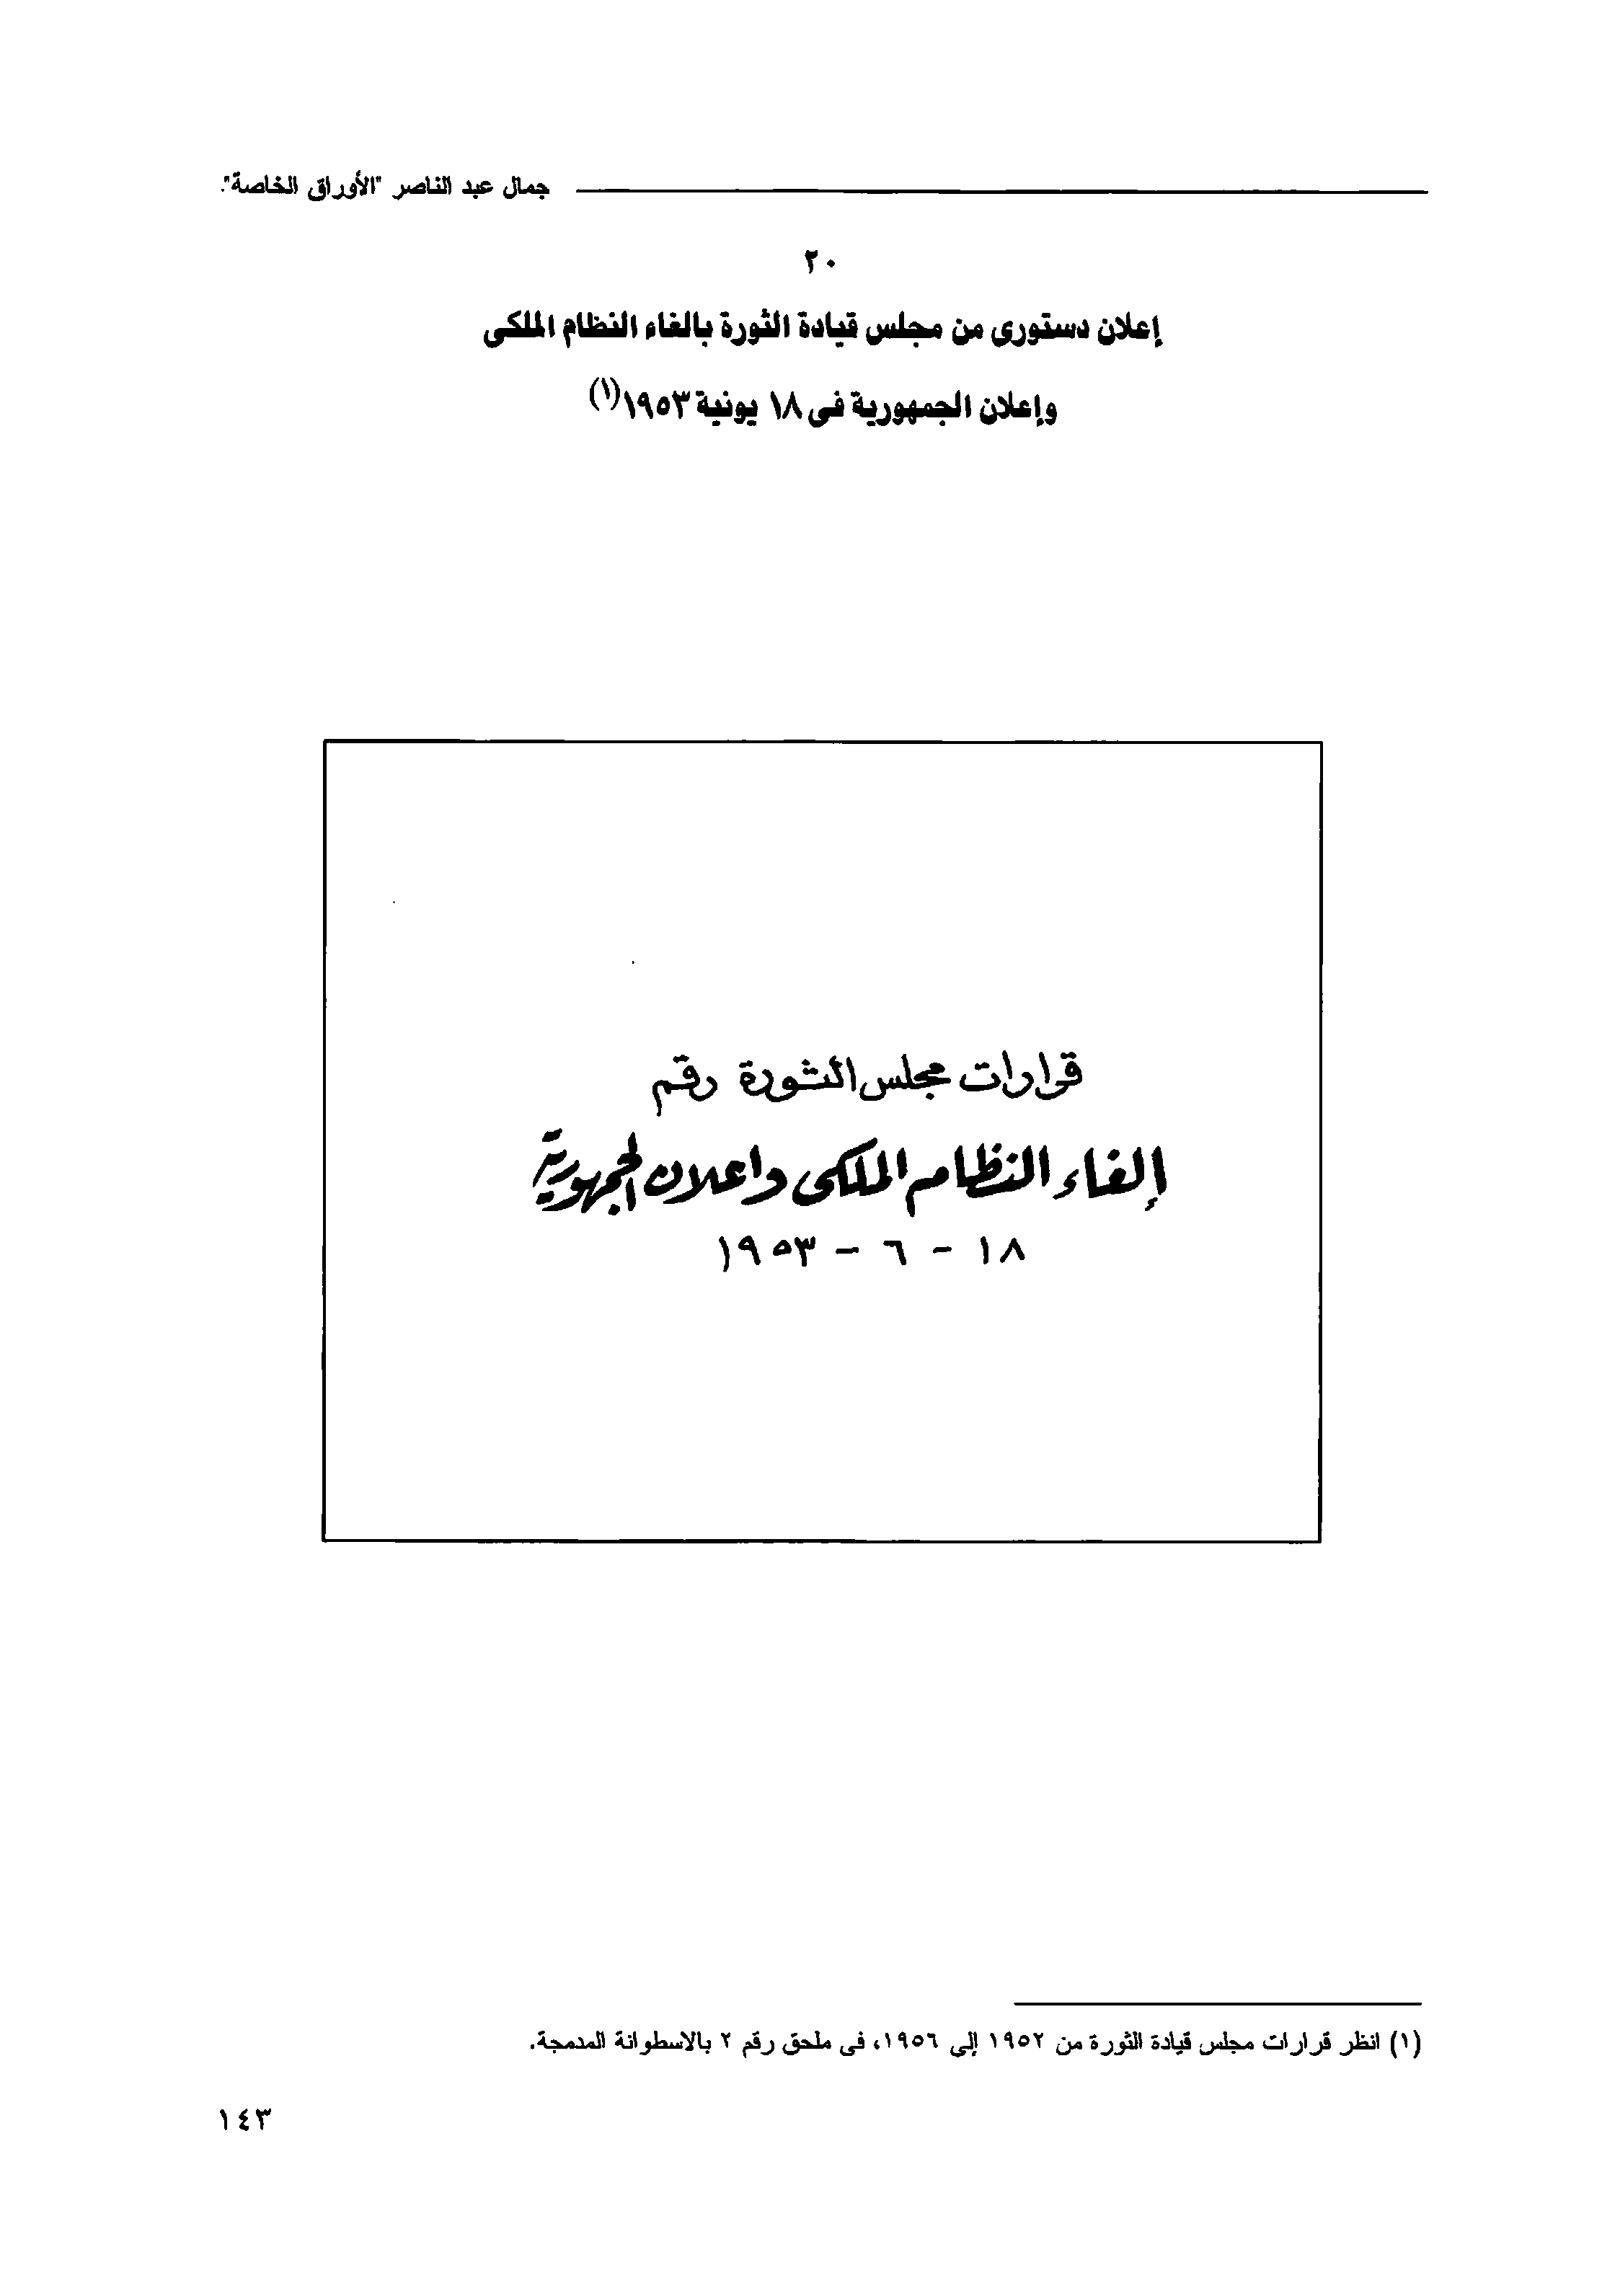 جمال عبد الناصر "الأوراق الخاصة".
٢٠
إعلان دستورى من مجلس قيادة الثورة بالغاء النظام الملكى
وإعلان الجمهورية فى ١٨ يونية ١٩٥٣(١)
قرارات مجلس الثورة رقم
إلغاء النظام الملكى واعلان الجمهورية
١٨ - ٦ - ١٩٥٣
(١) انظر قرارات مجلس قيادة الثورة من ١٩٥٢ إلى ١٩٥٦، فى ملحق رقم ٢ بالاسطوانة المدمجة.
١٤٣